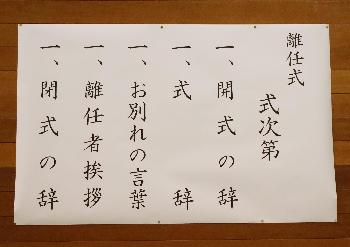 離任式
式次第
一、開式の辞
一、式辞
一、お別れの言葉
一、離任者挨拶
一、閉式の辞